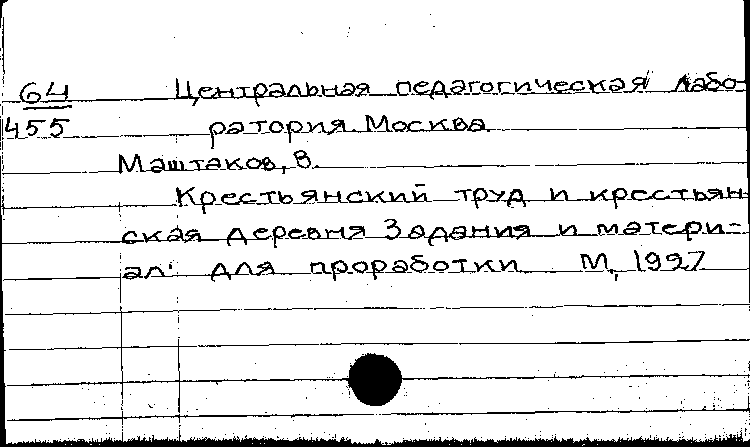 64 Центральная педагогическая лабо-
455 ратория. Москва.
Маштаков, В.
Крестьянский труд и крестьян
ская деревня Задания и матери-
ал. для проработки М, 1927